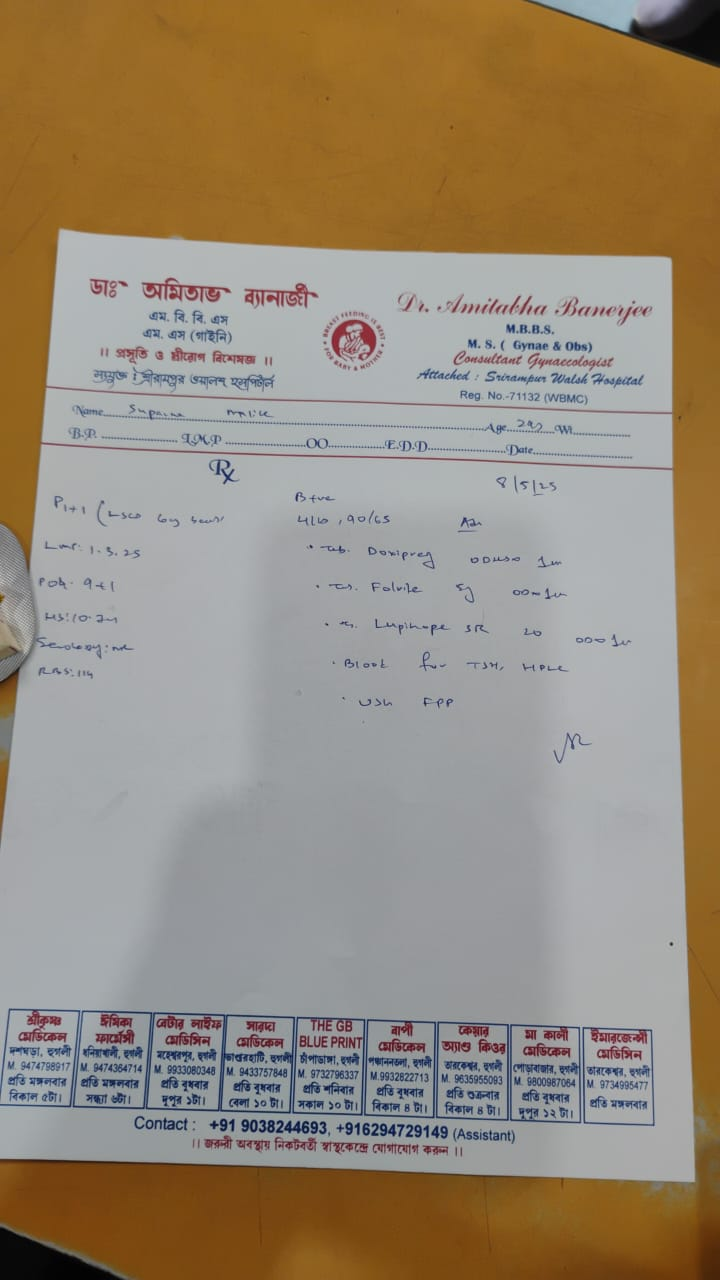 ডাঃ অমিতাভ ব্যানার্জী
এম. বি. বি. এস
এম. এস (গাইনি)
।। প্রসূতি ও স্ত্রীরোগ বিশেষজ্ঞ ।।
সংযুক্ত : শ্রীরামপুর ওয়ালশ হসপিটাল
BREAST FEEDING IS BEST FOR BABY & MOTHER
Dr. Amitabha Banerjee
M.B.B.S.
M. S. ( Gynae & Obs)
Consultant Gynaecologist
Attached : Srirampur Walsh Hospital
Reg. No.-71132 (WBMC)
Name Suparna Malik Age 29y Wt
B.P. L.M.P OO E.D.D Date
Rx
8/5/25
P1+1 (LSCS 6y
LMP: 1.3.25
POG: 9+1
Hb: 10.2
Serology: NR
RBS: 114
B+ve
90/65
• Tab. Doxipreg 1m
• Folvite 5 1m
• Lupihope SR 20 1m
• Blood for TSH, HPLC
• USG FPP
শ্রীকৃষ্ণ মেডিকেল
দশঘড়া, হুগলী
M. 9474798917
প্রতি মঙ্গলবার
বিকাল ৫টা।
ঈষিকা ফার্মেসী
ধনিয়াখালী, হুগলী
M. 9474364714
প্রতি মঙ্গলবার
সন্ধ্যা ৬টা।
বেটার লাইফ মেডিসিন
মহেশ্বরপুর, হুগলী
M. 9933080348
প্রতি বুধবার
দুপুর ১টা।
সারদা মেডিকেল
ভাণ্ডারহাটি, হুগলী
M. 9433757848
প্রতি বুধবার
বেলা ১০ টা।
THE GB BLUE PRINT
চাঁপাডাঙ্গা, হুগলী
M. 9732796337
প্রতি শনিবার
সকাল ১০ টা।
বাপী মেডিকেল
পঞ্চাননতলা, হুগলী
M.9932822713
প্রতি বুধবার
বিকাল ৪ টা।
কেয়ার অ্যাণ্ড কিওর
তারকেশ্বর, হুগলী
M. 9635955093
প্রতি শুক্রবার
বিকাল ৪ টা।
মা কালী মেডিকেল
পোড়াবাজার, হুগলী
M. 9800987064
প্রতি বুধবার
দুপুর ১২ টা।
ইমারজেন্সী মেডিসিন
তারকেশ্বর, হুগলী
M. 9734995477
প্রতি মঙ্গলবার
Contact : +91 9038244693, +916294729149 (Assistant)
।। জরুরী অবস্থায় নিকটবর্তী স্বাস্থ্যকেন্দ্রে যোগাযোগ করুন ।।